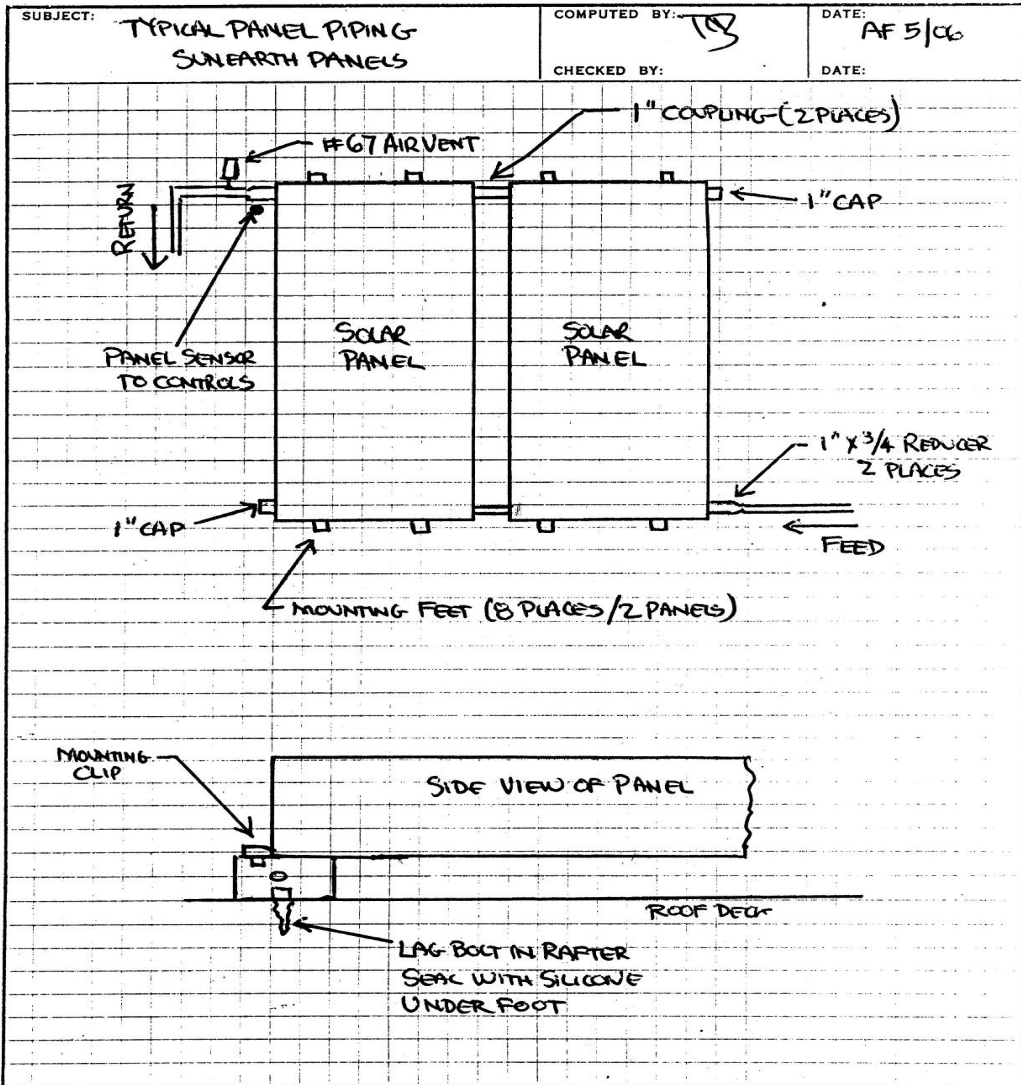 SUBJECT: TYPICAL PANEL PIPING
SUNEARTH PANELS
COMPUTED BY: TB
DATE: AF 5/06
CHECKED BY:
DATE:
1" COUPLING-(2 PLACES)
#67 AIR VENT
RETURN
1" CAP
SOLAR
PANEL
SOLAR
PANEL
PANEL SENSOR
TO CONTROLS
1" X 3/4 REDUCER
2 PLACES
1" CAP
FEED
MOUNTING FEET (8 PLACES/2 PANELS)
MOUNTING
CLIP
SIDE VIEW OF PANEL
ROOF DECK
LAG BOLT IN RAFTER
SEAL WITH SILICONE
UNDER FOOT